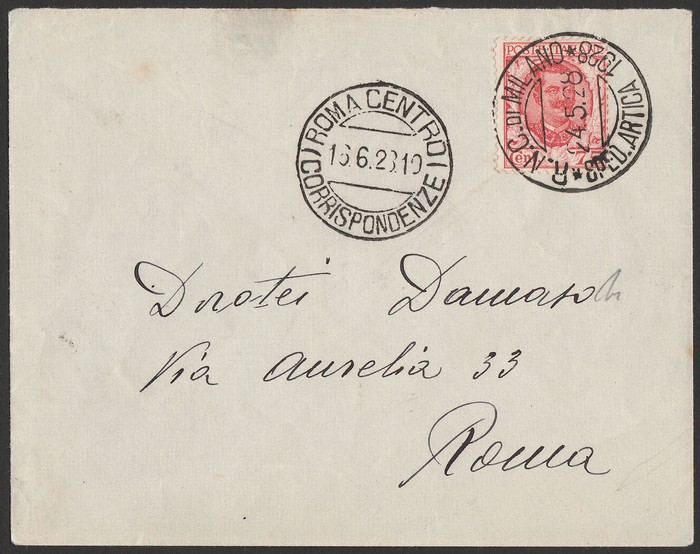 POSTE ITALIANE
R.N.C. DI MILANO * SPED. ARTICA 1928 *
24.5.28
Cent 75
ROMA CENTRO
16.6.28.19
(CORRISPONDENZE)
Dorotei Damaso
Via Aurelia 33
Roma